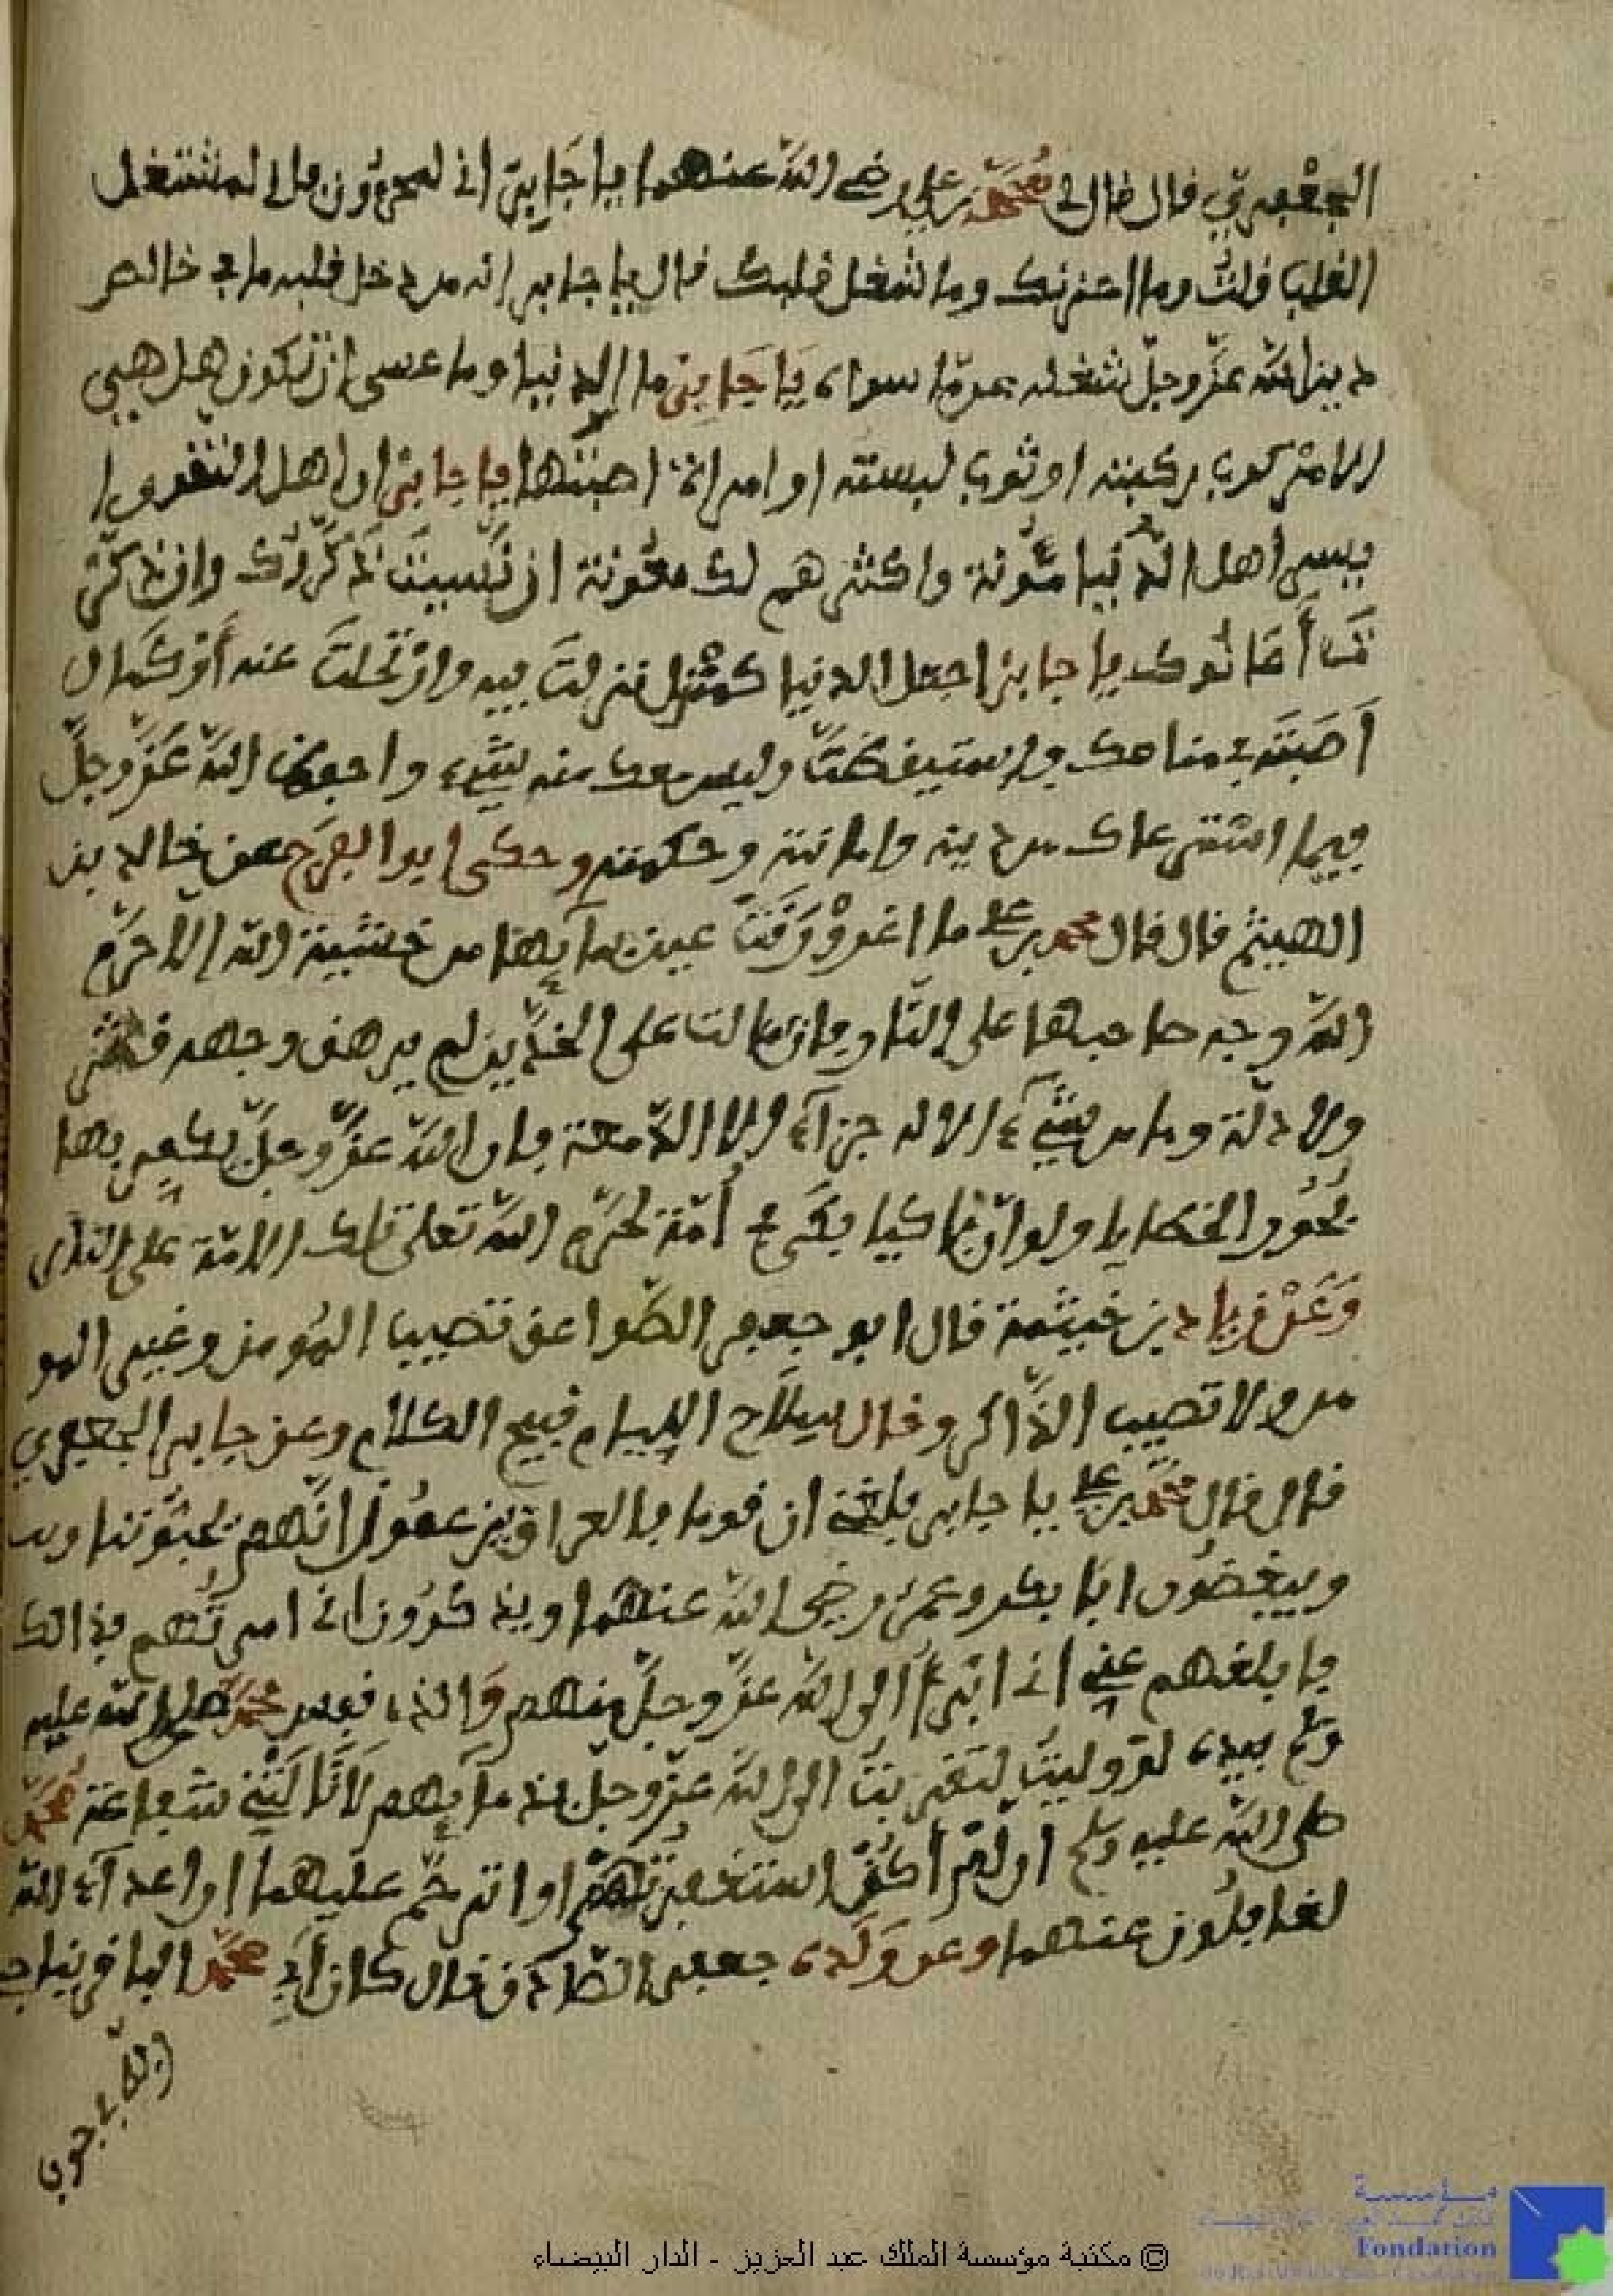 الجعفي قال قال لي محمد بن علي رضي الله عنهما يا جابر اني لمحزون واني لمشتغل
القلب قلت وما احزنك وما شغل قلبك قال يا جابر انه من دخل قلبه صافي خالص
دين الله عز وجل شغله عما سواه يا جابر ما الدنيا وما عسى ان تكون هل هي
الا مركوب ركبته او ثوب لبسته او امراة اصبتها يا جابر ان اهل التقوى ا
يسر اهل الدنيا مئونة واكثرهم لك معونة ان نسيت ذكروك وان ذكر
ت أعانوك يا جابر اجعل الدنيا كمنزل نزلت فيه وارتحلت عنه أو كمال
أصبته في منامك واستيقظت وليس معك منه شيء واحفظ الله عز وجل
فيما استرعاك من دينه وامانته وحكمته وحكى ابو الفرج عن خالد بن
الهيثم قال قال محمد بن علي ما اغرورقت عين بمآيها من خشية الله إلا حرم
الله وجه صاحبها على النار فان سالت على الخدين لم يرهق وجهه قتر
ولا ذلة وما من شيء الا له جزآء الا الدمعة فان الله عز وجل يكفر بها
بحور الخطايا ولو ان باكيا بكى في أمة لحرم الله تعلى تلك الامة على النار
وعن زياد بن خيثمة قال ابو جعفر الصواعق تصيب المؤمن وغير المو
من ولا تصيب الذاكر وقال سلاح الليام قبيح الكلام وعن جابر الجعفي
قال قال محمد بن علي يا جابر بلغني ان قوما بالعراق يزعمون انهم يحبوننا
ويبغضون ابا بكر وعمر رضي الله عنهما ويذكرون اني امرتهم بذالك
فابلغهم عني اني ابرأ الى الله عز وجل منهم والذي نفس محمد صلى الله عليه
وسلم بيده لو وليت لتقربت الى الله عز وجل بدمآيهم لا نالتني شفاعة محمد
صلى الله عليه وسلم ان لم أكن استغفر لهما واترحم عليهما ان اعدآء الله
لغافلون عنهما وعن ولده جعفر الصادق قال كان أبي محمد الباقر يناجي